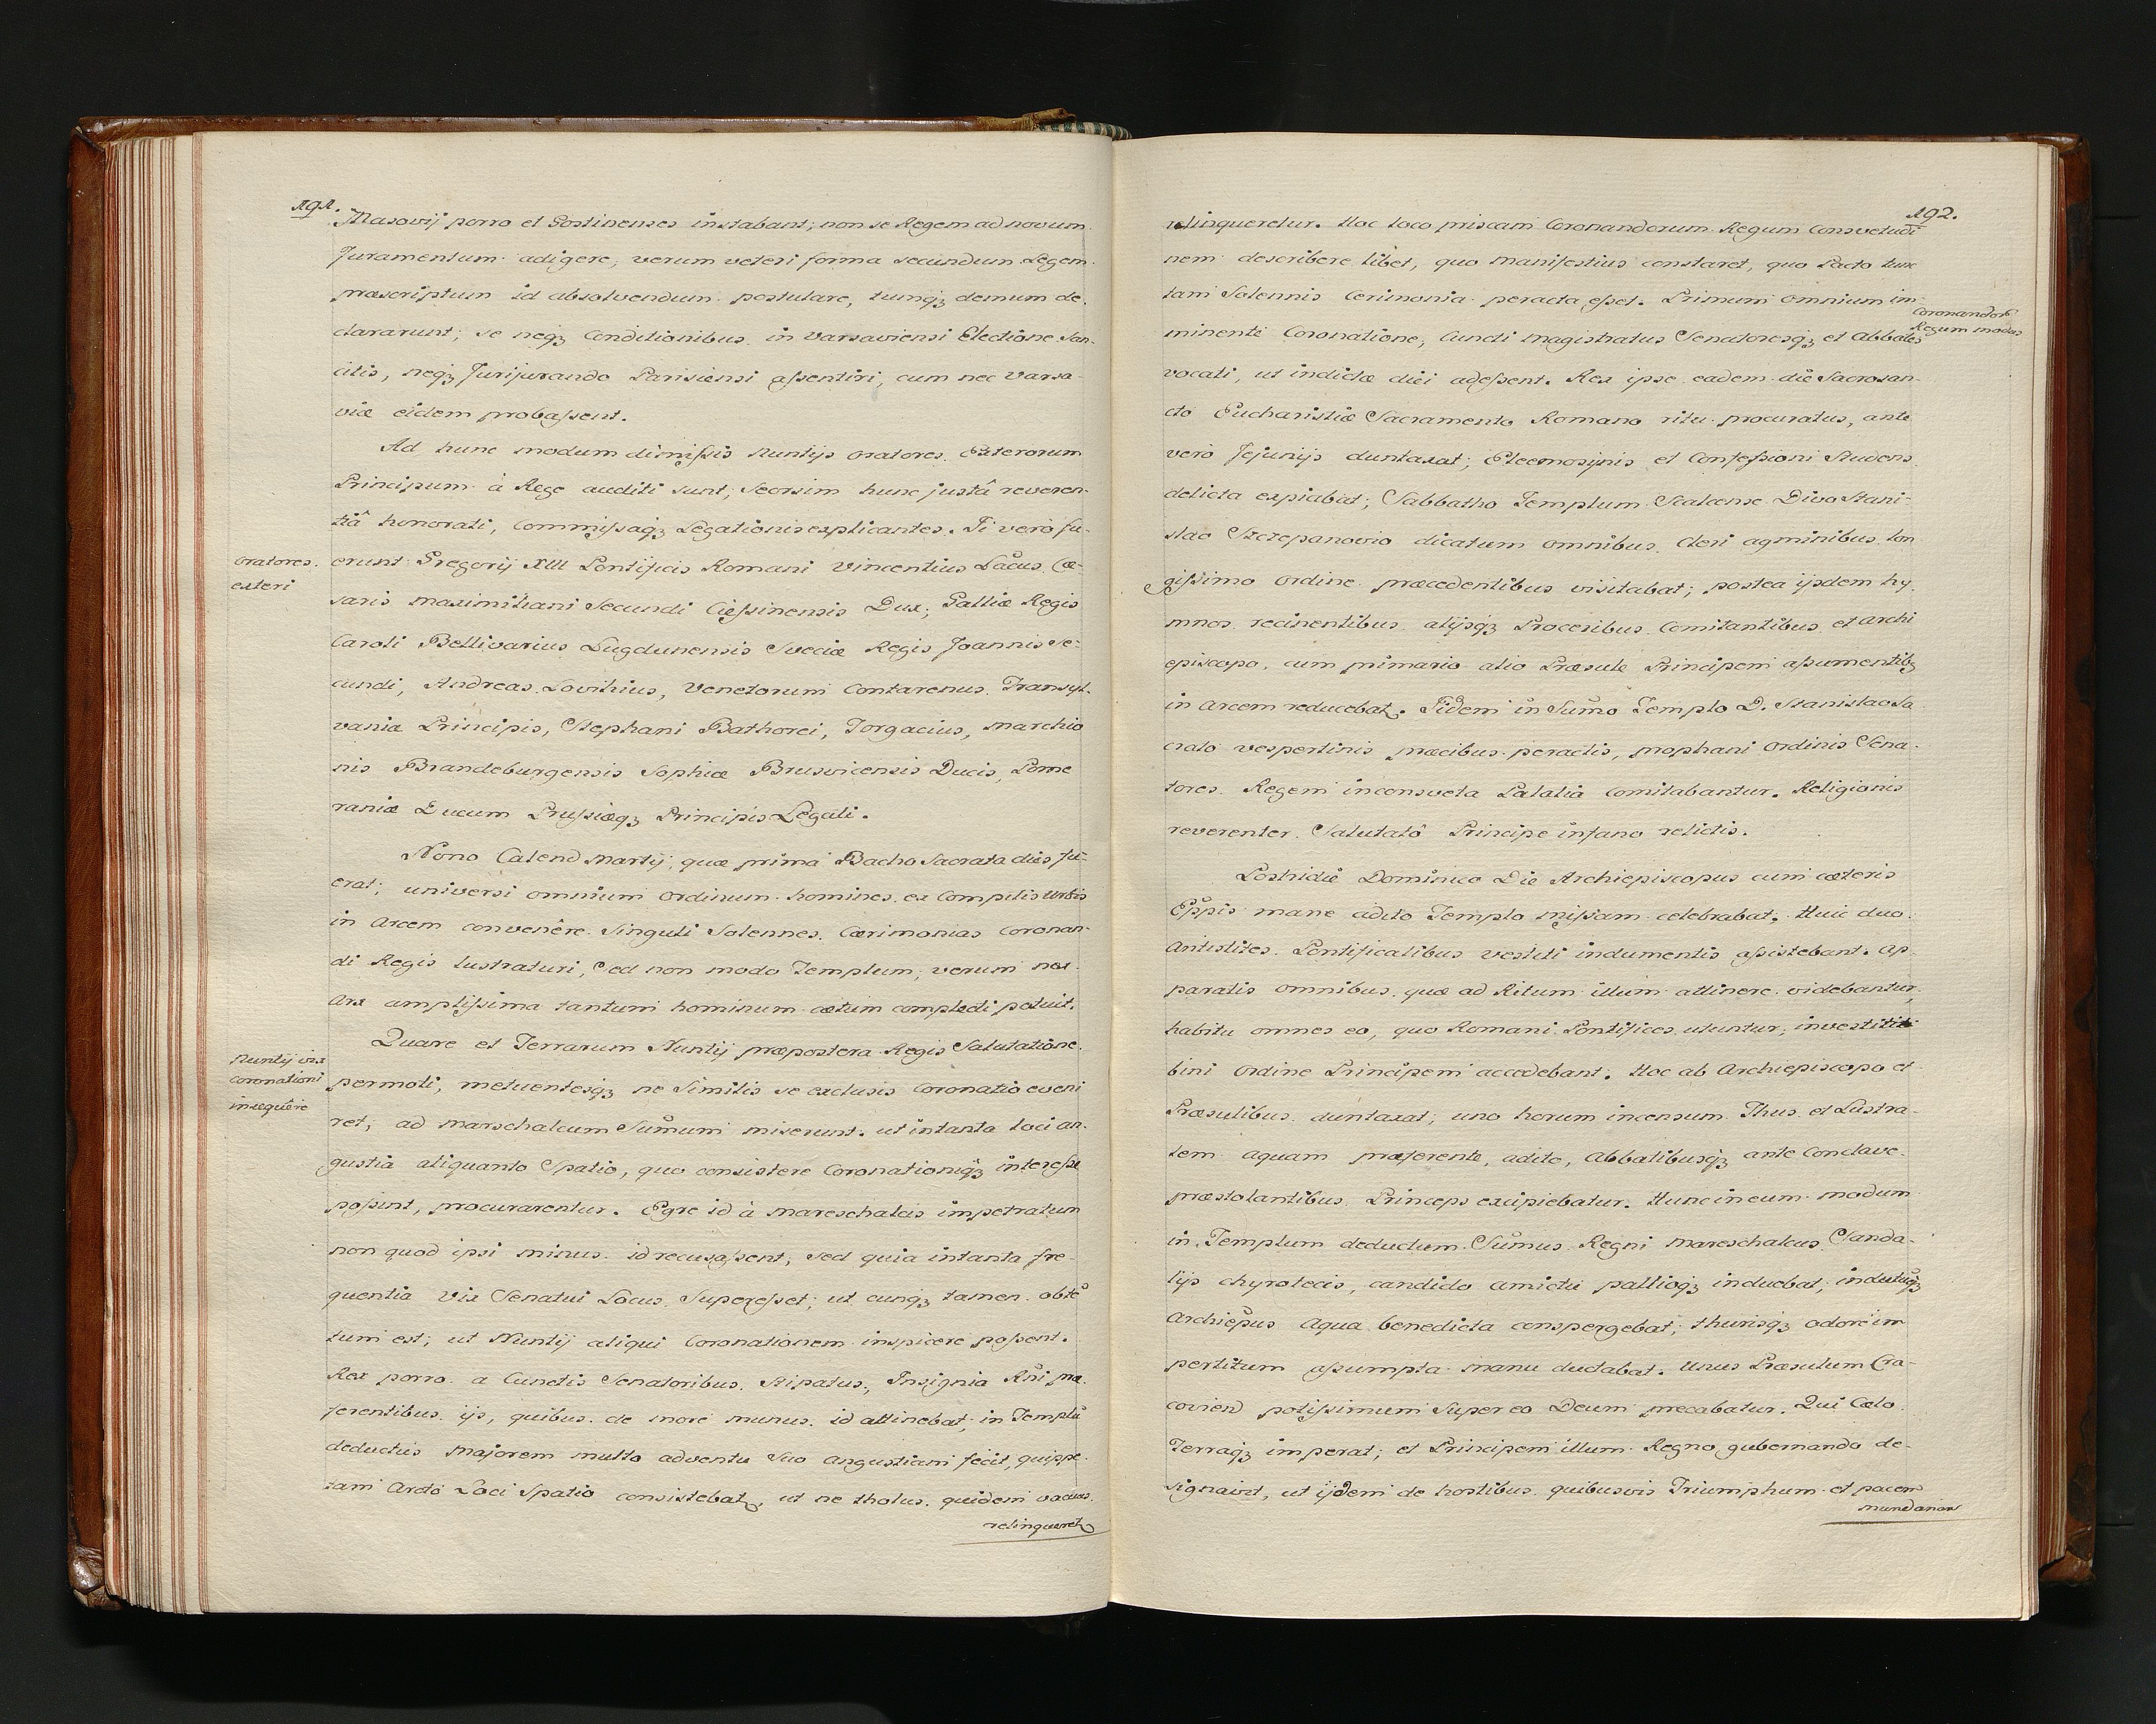 191.
Masovij porro et Gostinenses instabant; non se Regem ad novum
Juramentum adigere, verum veteri forma secundum Legem
præscriptum id absolvendum postulare, tumqꝫ demum de-
clararunt; se neqꝫ Conditionibus in Varsaviensi Electione San-
citis, neqꝫ Jurijurando Parisiensi aſsentiri, cum nec Varsa-
viæ eidem probaſsent.
Ad hunc modum dimiſsis Nuntijs oratores Exterorum
Principum à Rege auditi sunt; Seorsim hunc justâ reveren-
tiâ honorati, Commiſsaqꝫ Legationis explicantes. Ii verò fu-
oratores
exteri
erunt Gregorij XIII Pontificis Romani Vincentius Lacus Cæ-
saris Maximiliani Secundi Cieſsinensis Dux; Galliæ Regis
Caroli Bellivarius Lugdunensis Sveciæ Regis Joannis Se-
cundi, Andreas Lovihius, Venetorum Contarenus Transyl-
vaniæ Principis, Stephani Bathorei, Jorgacius, Marchio
nis Brandeburgensis Sophiæ Brusvicensis Ducis, Pome
raniæ Ducum Pruſsiæqꝫ Principis Legati.
Nono Calend Martij, quæ prima Bacho Sacrata dies fu-
erat; universi omnium ordinum homines ex Compitis Urbis
in Arcem convenêre Singuli Solennes Cærimonias Coronan-
di Regis lustraturi, Sed non modo Templum, verum nec
Arx ampliſsima tantum hominum cætum complecti potuit.
Quare et Terrarum Nuntij præpostera Regis Salutatione
Nuntij vix
coronationi
insequêre
permoti, metuentesqꝫ ne Similis se exclusis Coronatio eveni
ret; ad Marschalcum Sum̃um miserunt. ut intanta loci an-
gustia aliquanto Spatio, quo consistere Coronationiqꝫ intereſse
poſsint, procurarentur. Egre id à Mareschalcis impetratum
non quod ipsi minus id recusaſsent; sed quia intanta fre-
quentia vix Senatui Locus Supereſset; ut cunqꝫ tamen obtẽ
tum est; ut Nuntij aliqui Coronationem inspicere poſsent.
Rex porro a Cunctis Senatoribus stipatus, Insignia Rñi præ-
ferentibus ijs, quibus de more munus id attinebat, in Templũ
deductus majorem multo adventu Suo angustiam fecit, quippe
tam Arcto Loci Spatio consistebatꝫ, ut ne tholus quidem vacuus
relinqueretꝫ
192.
relinqueretur. Hoc loco priscam Coronandorum Regum Consvetudi
nem describere libet, quo manifestius constaret, quo Pacto tunc
tam Solennis Cerimonia peracta eſset. Primum omnium im-
Coronandoꝝ
Regum modus
minente Coronatione, Cuncti Magistratus Senatoresqꝫ et Abbates
vocati, ut indictæ diei adeſsent. Rex ipse eadem die Sacrosan-
cto Eucharistiæ Sacramento Romano ritu procuratus, ante
verò Jejunijs duntaxat; Eleemosijnis et Confeſsioni Studens
delicta expiabat; Sabbatho Templum Scalcense Divo Stani-
slao Szczepanovio dicatum omnibus Cleri agminibus lon
giſsimo ordine præcedentibus visitabat; postea ijsdem hy
mnos recinentibus alijsqꝫ Proceribus Comitantibus et Archi
episcopo, cum primario alio Præsule Principem aſsumentibꝫ
in Arcem reducebatꝫ. Tidem in Sum̃o Templo D. Stanislao Sa
crato vespertinis præcibus peractis, prophani Ordinis Sena-
tores Regem inconsveta Palatia Comitabantur. Religionis
reverenter Salutatô Principe infano relictis.
Postridie Dominico Die Archiepiscopus cum cæteris
Ep̃pis mane adito Templo miſsam celebrabat; Huic duo
Antistites Pontificalibus vestiti indumentis aſsistebant. Ap-
paratis omnibus quæ ad Ritum illum attinere videbantur,
habitu omnes eo, quo Romani Pontifices utuntur, investiti
bini ordine Principem accedebant. Hoc ab Archiepiscopo et
Præsulibus duntaxat; uno horum incensum Thus et Lustra-
tem aquam præferente, adito, Abbatibusqꝫ ante Conclave
præstolantibus Princeps excipiebatur. Huncineum modum
in Templum deductum Sum̃us Regni Mareschalcus Sanda-
lijs chyrotecis, candido amictu palliogꝫ induebat, indutũqꝫ
Archiẽpus Aqua benedicta conspergebat; thurisqꝫ odore im
pertitum aſsumpta manu ductabat. Unus Præsulum Cra-
covien potiſsimum Super eo Deum precabatur. Qui Cælo
Terraqꝫ imperat; et Principem illum Regno gubernando de-
signavit, ut ijdem de hostibus quibusvis Triumphum et pacem
mundanam